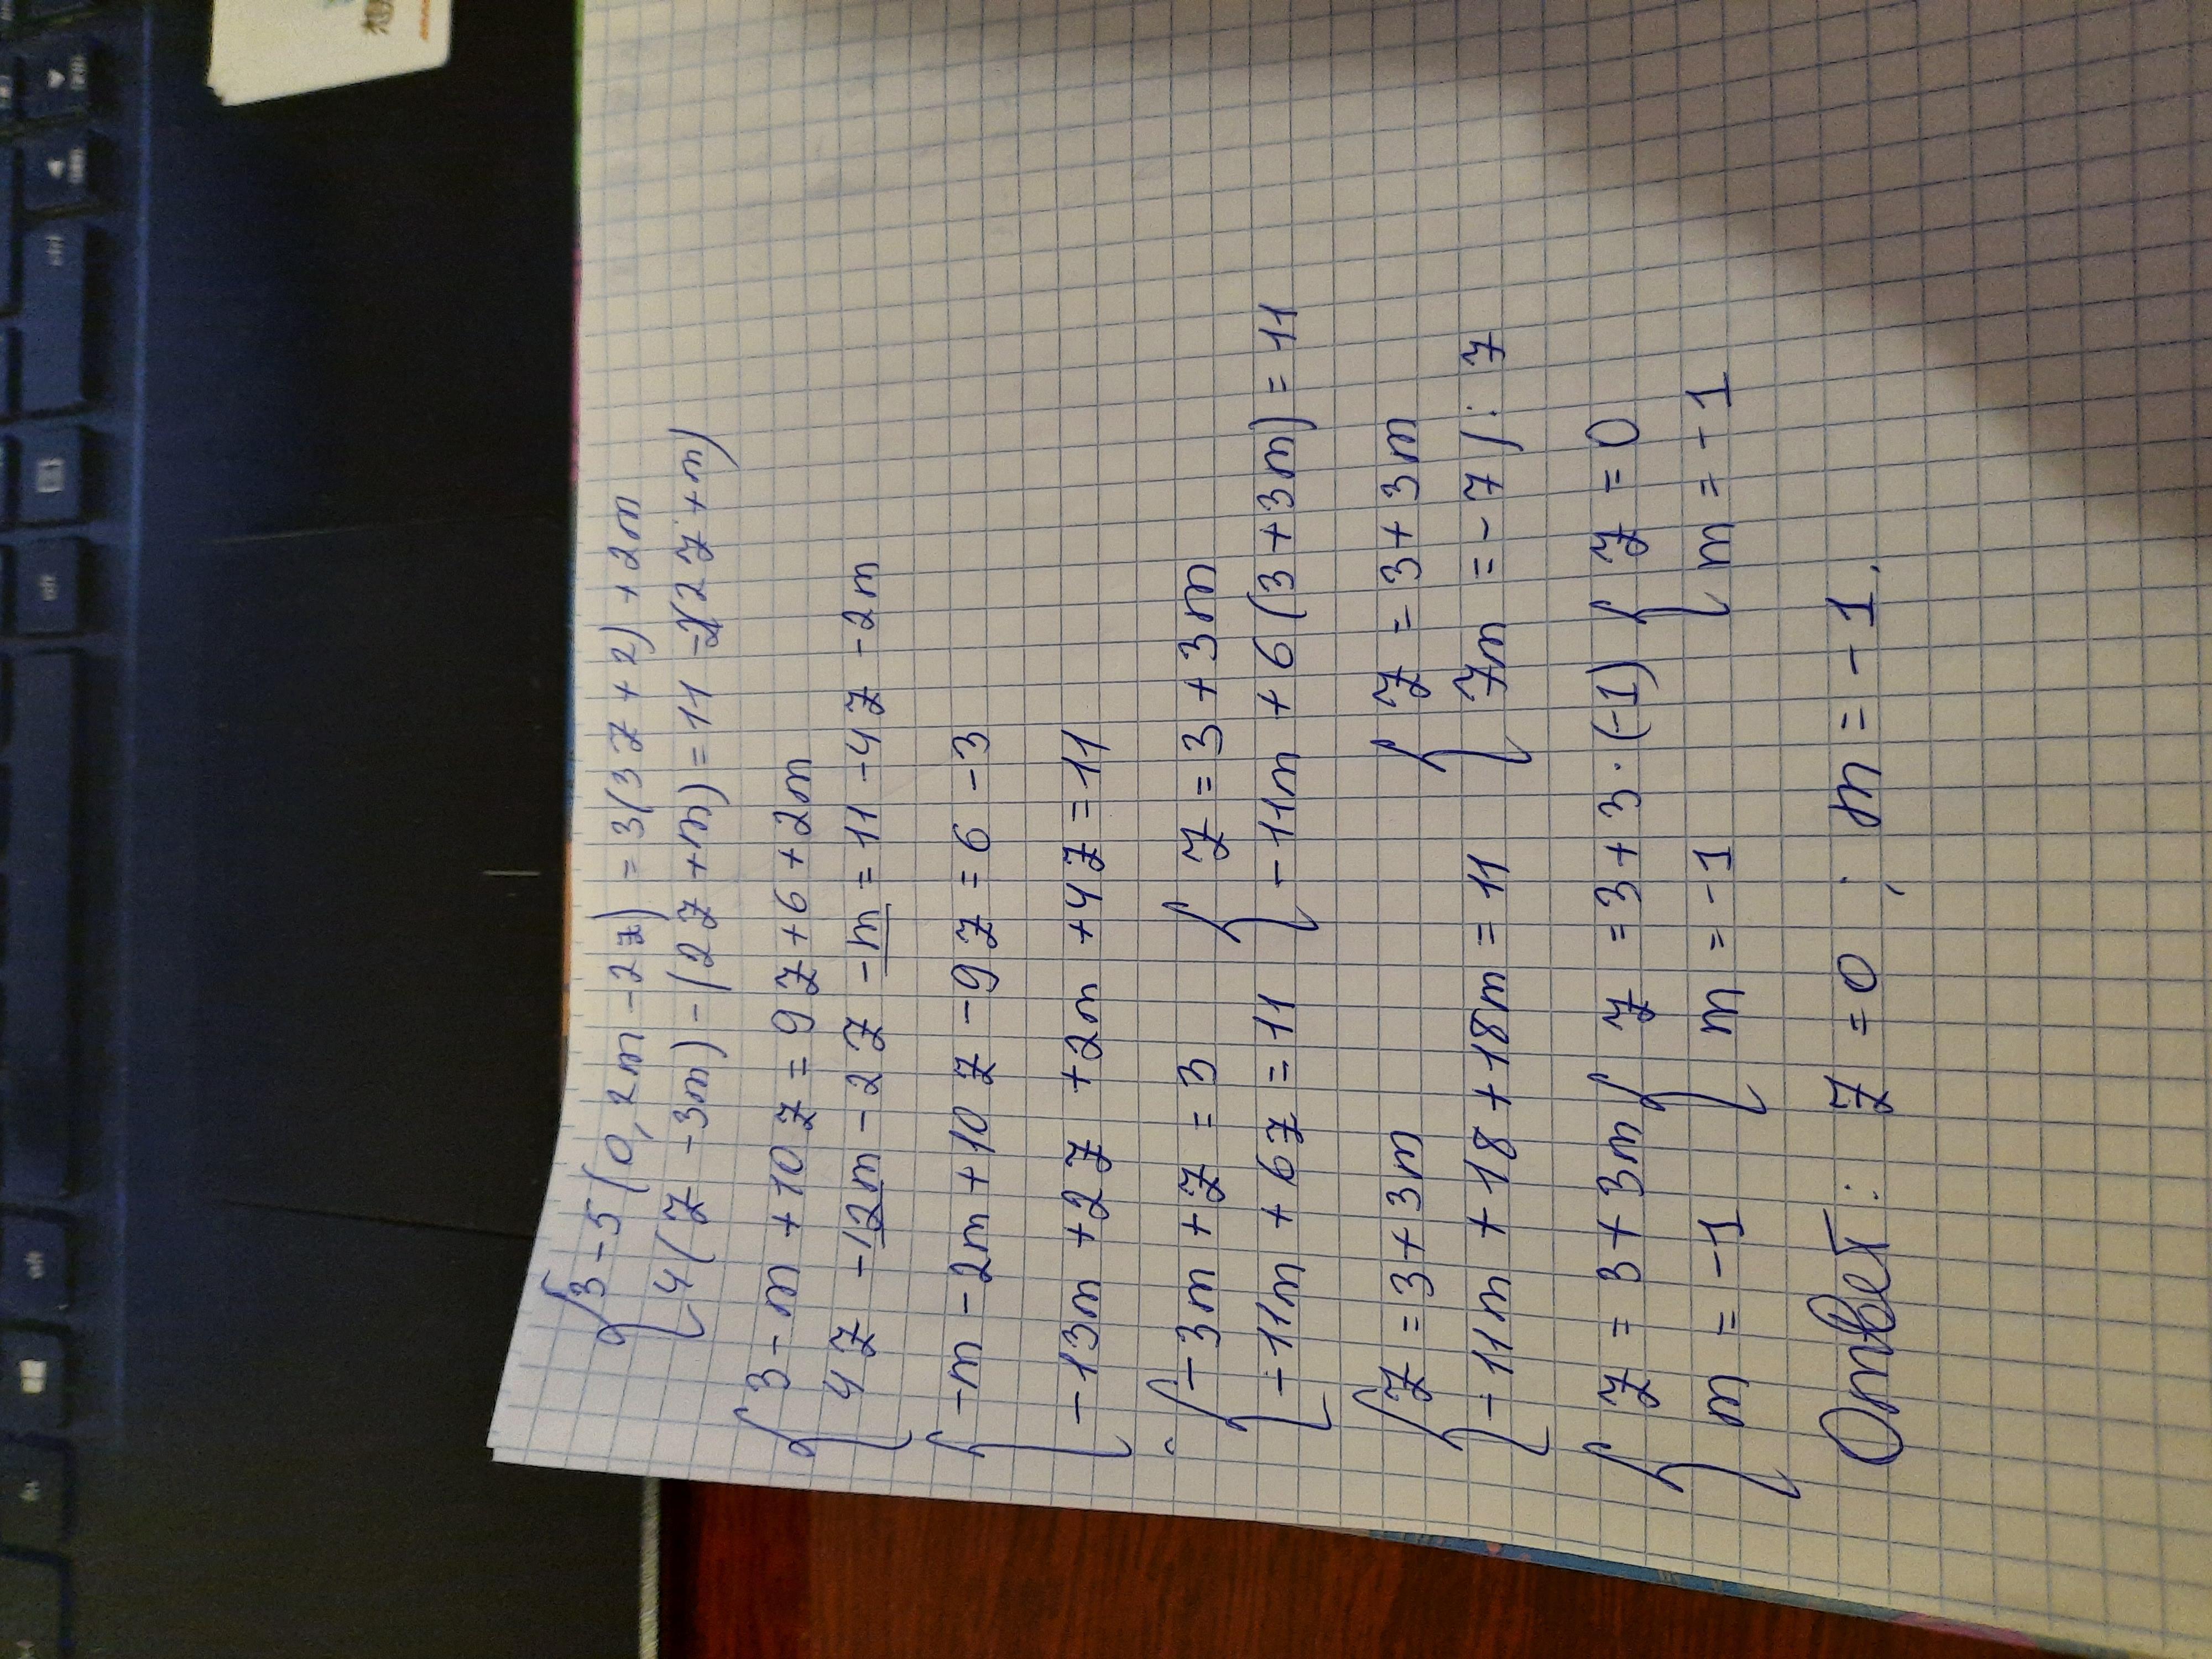 {3-5(0,2m-2z)=3(3z+2)+2m
{4(z-3m)-(2z+m)=11-2(2z+m)
{3-m+10z=9z+6+2m
{4z-12m-2z-m=11-4z-2m
{-m-2m+10z-9z=6-3
{-13m+2z+2m+4z=11
{-3m+z=3 {z=3+3m
{-11m+6z=11 {-11m+6(3+3m)=11
{z=3+3m {z=3+3m
{-11m+18+18m=11 {7m=-7/:7
{z=3+3m {z=3+3·(-1) {z=0
{m=-1 {m=-1 {m=-1
Ответ: z=0; m=-1.